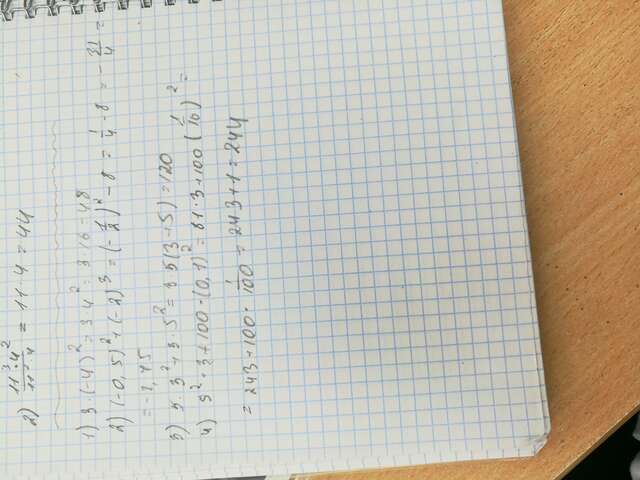 2) 11³·4² / 11²·4 = 11·4 = 44
1) 3·(-4)² = 3·4² = 3·16 = 48
2) (-0,5)² + (-2)³ = (-1/2)² - 8 = 1/4 - 8 = -31/4 =
= -7,75
3) 5·3² + 3·5² = 3·5(3+5) = 120
4) 9²·3 + 100·(0,1)² = 81·3 + 100(1/10)² =
= 243 + 100·1/100 = 243 + 1 = 244